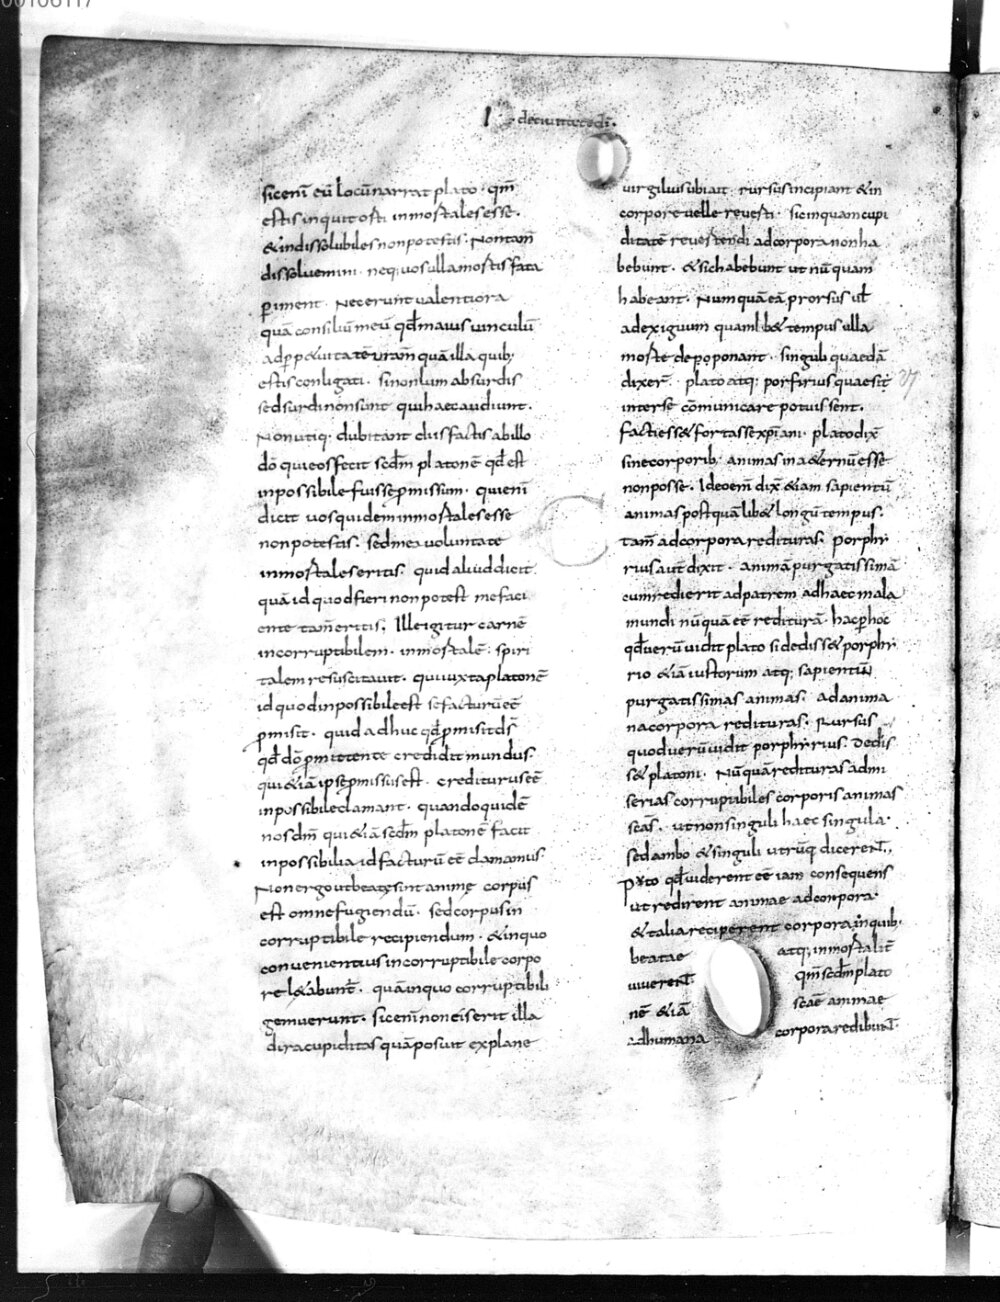 00106117
I decivitatedī.
sicenī eū locūnarrat plato · qm̄
estis inquit orti inmortales esse.
&indissolubiles nonpotestis. Nontam̄
dissoluemini · neq; uosulla mortis fata
ꝑiment · Necerunt ualentiora
quā consiliū meū qđ maius uinculū
adꝑpetuitatē uram̄ quā illa quib;
estis conligati. sinonlum absurdis
sedsurdinonsunt quihaecaudiunt.
Nonutiq; dubitant diis factis abillo
dō quieosfecit scdm̄ platonē qđ est
inpossibile fuisse ꝑmissum. quienī
dicit uosquideminmortalesesse
nonpotestis. sedmea uoluntate
inmortaleseritis. quidaliuddicit
quā id quodfieri nonpotest mefaci
ente tam̄eritis. Illeigitur carnē
incorruptibilem · inmortalē · spiri
talemresuscitauit. quiuxtaplatonē
id quodinpossibileest sefacturūeē
ꝑmisit. quid adhuc qđ ꝑmisitdš
qđ dō ꝑmittente credidit mundus.
qui&iā ipse ꝑmissusest. credituruseē
inpossibileclamant. quandoquidē
nosdm̄ qui&iā scdm̄ platonē facit
inpossibilia idfacturū eē clamamus.
Nonergoutbeatę sint animę corpus
est omnefugiendū. sedcorpusin
corruptibile recipiendum. &inquo
conuenientius incorruptibile corpo
re l&abunt̄. quāinquo corruptibili
gemuerunt. sicenī noneiserit illa
diracupiditas quāposuit explane
uirgiliussubiait. rursusincipiant &in
corpore uelle reuerti. sicinquamcupi
ditatē reuertendi adcorporanonha
bebunt. &sichabebunt ut nūquam
habeant. Numquā eā prorsus ut̄
adexiguum quamlib& tempus ulla
morte deponant. singuli quaedā
dixer̄. plato atq; porfirius quaesit 37
interse cōmunicare potuissent.
facti ess& fortassexp̄iani. platodix̄
sinecorporib; animas ina&ernūesse
nonposse. Ideoem̄ dix̄ &iam sapientū
animas postquālib& longū tempus.
tam̄ adcorpora redituras. porphi
rius aut̄ dixit. animā purgatissimā
cumredierit adpatrem adhaecmala
mundi nūquā eē rediturā. hacꝑ hoc
qđ uerū uidit plato si dediss& porphi
rio &iā iustorum atq; sapientiū
purgatissimas animas. adanima
nacorpora redituras. Rursus
quoduerū uidit porphirius. dedis
s& platoni. Nūquā redituras admi
serias corruptibiles corporis animas
scās. utnonsinguli haec singula.
sedambo &singuli utrūq; dicerent̄.
Puto qđ uiderent eē iam consequens
utredirent animae adcorpora.
&talia reciperent corpora inquib;
beatae atq; inmortalit̄
uiuerent̄ qm̄ scdm̄ plato
nē &iā scāe animae
adhumana corpora redibunt̄.